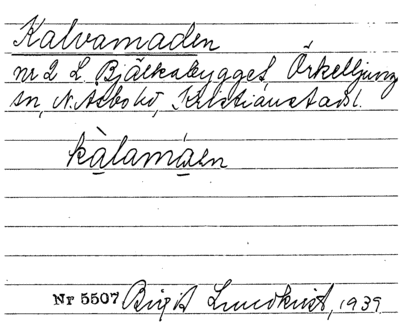 Kalvamaden
nr 2 L. Bjälkabygget, Örkelljunga
sn, N. Åsbo hd, Kristianstads l.
kàlamáen
Nr 5507 Birgit Lundkvist, 1939